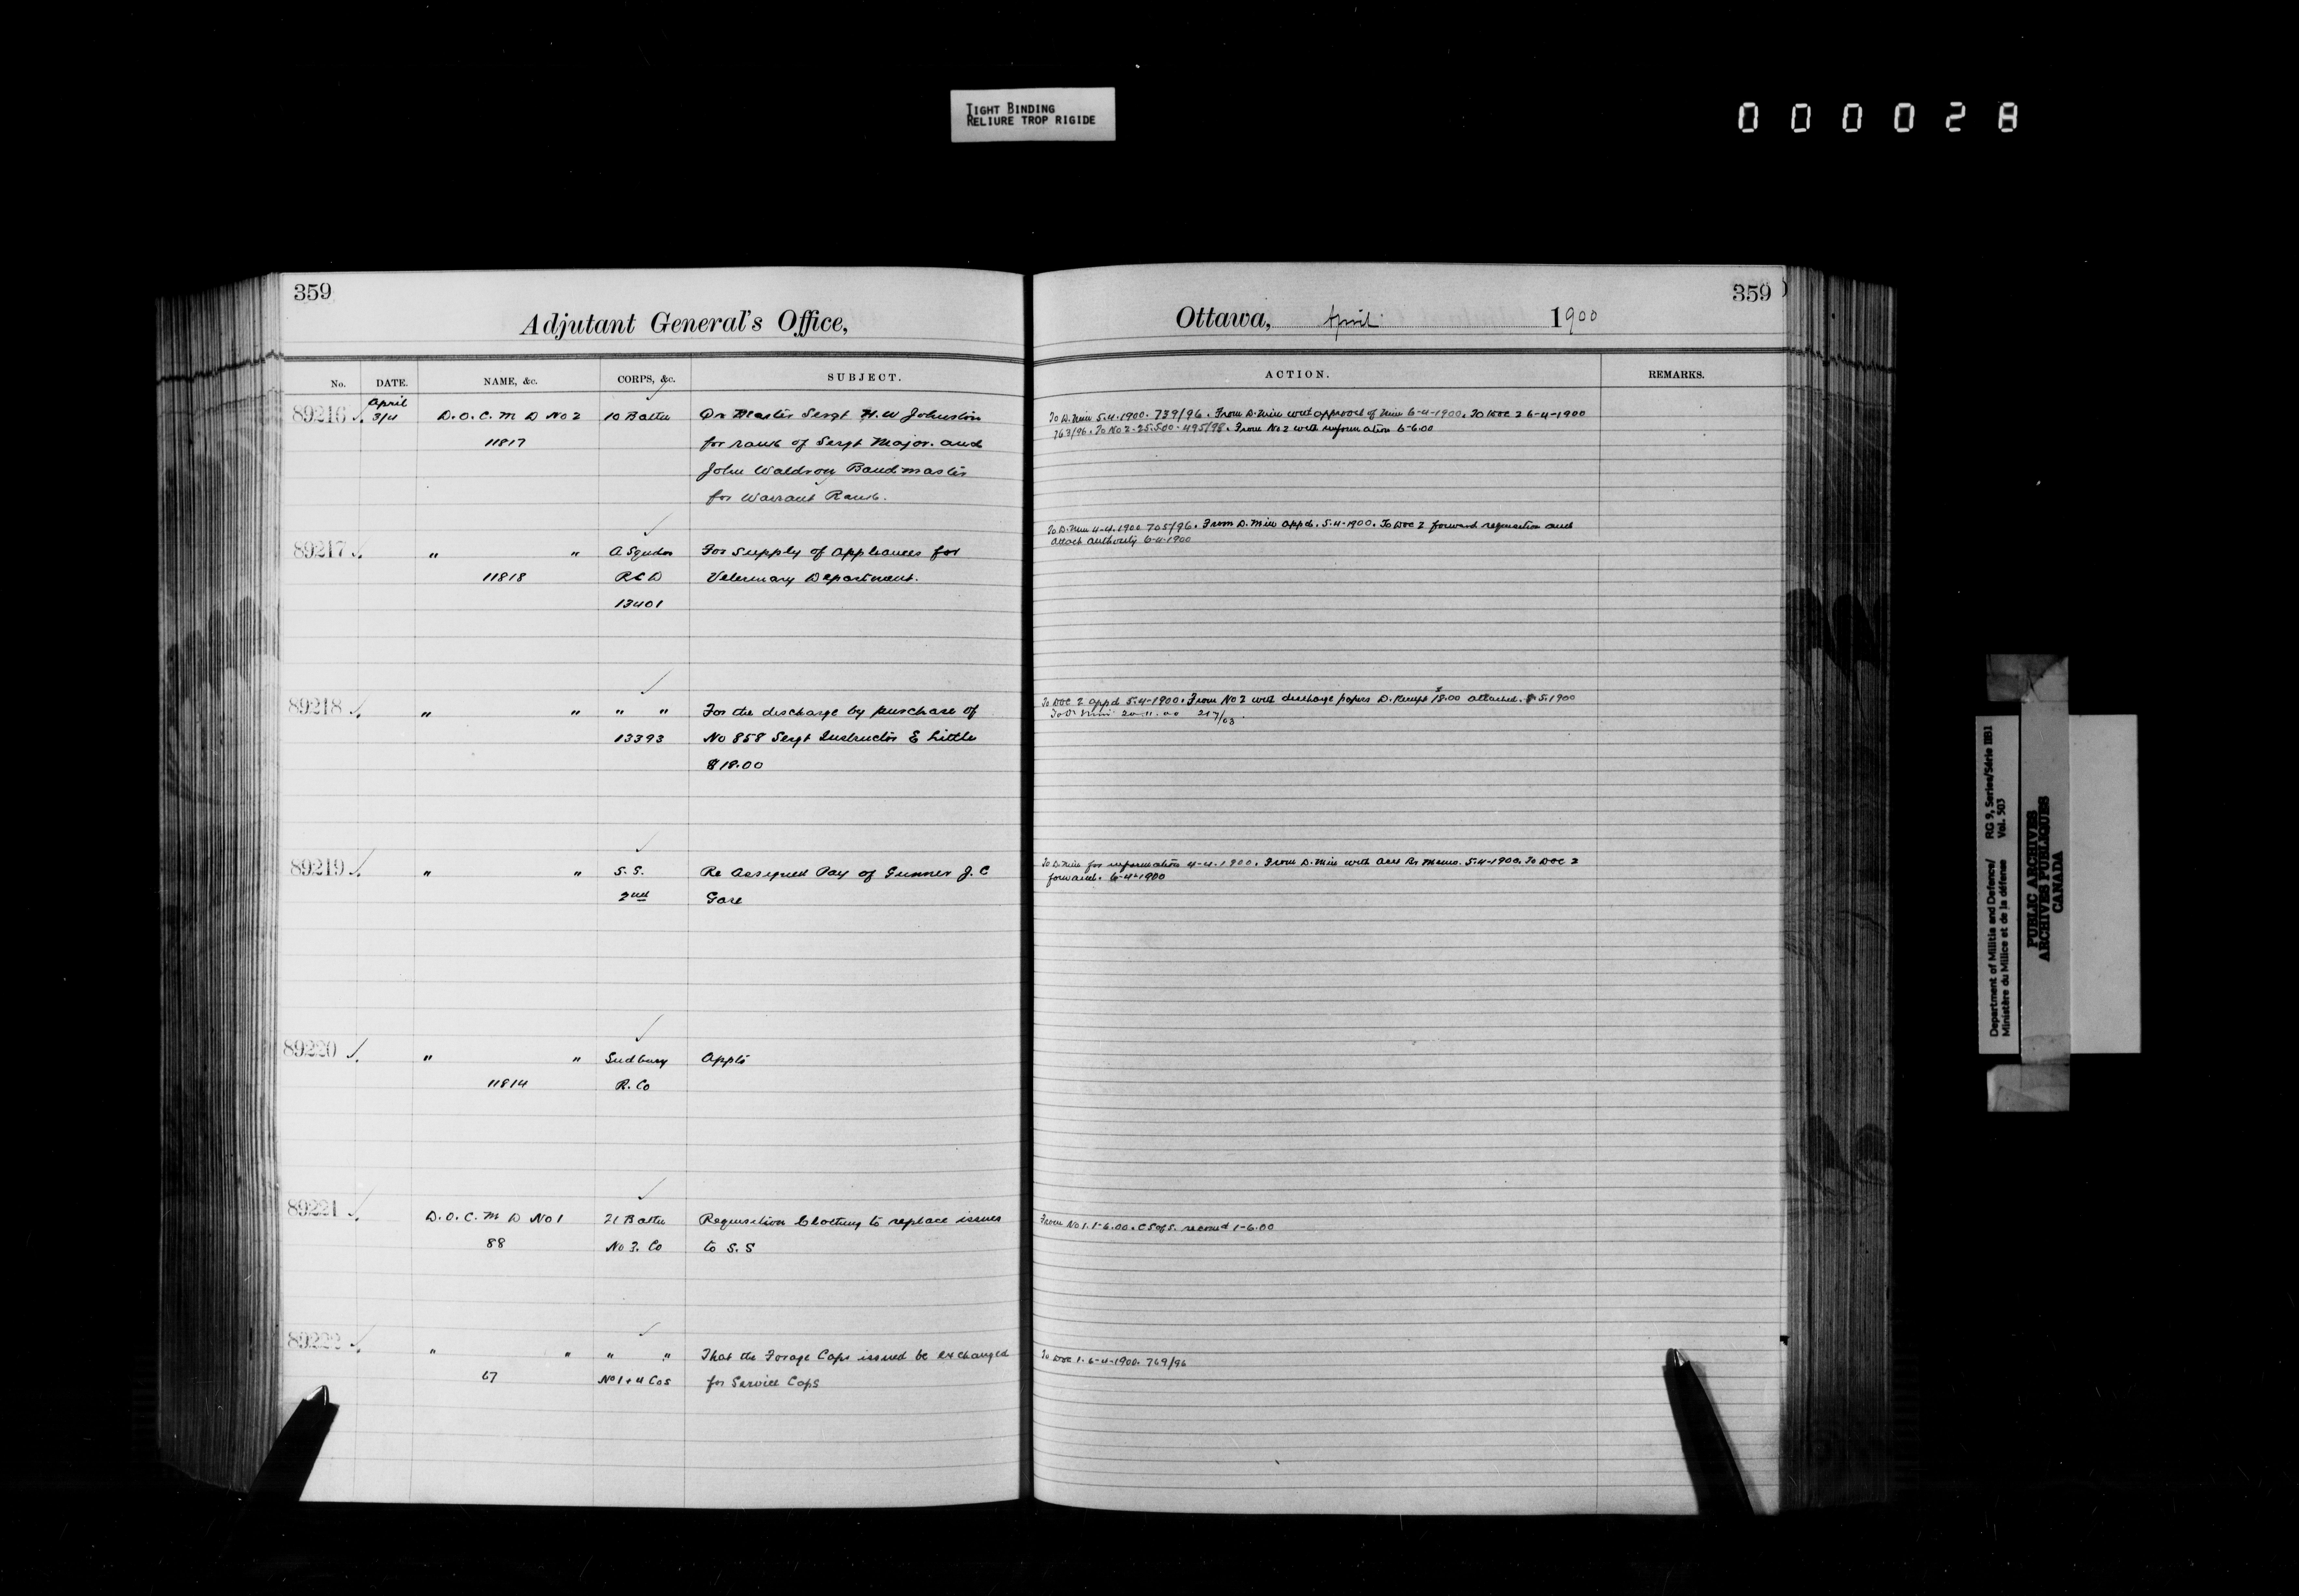 TIGHT BINDING
RELIURE TROP RIGIDE
000028
359
Adjutant General's Office,
No. DATE. NAME, &c. CORPS, &c. SUBJECT.
April
89216 3/4 D.O.C. M D No 2 10 Battn Qr Master Sergt H.W Johnston
11817 for rank of Sergt Major. and
John Waldron Bandmaster
for Warrant Rank.
89217 " " A Squdn For Supply of Appliances for
11818 R C D Veterinary Department.
13401
89218 " " " " For the discharge by purchase of
13393 No 858 Sergt Instructor E Little
$18.00
89219 " " S.S. Re Assigned Pay of Gunner J. C
2nd Gare
89220 " " Sudbury Appts
11814 R. Co
89221 D.O.C. M D No 1 21 Battn Requisition Clothing to replace issues
88 No 3. Co to S.S
89222 " " " " That the Forage Caps issued be exchanged
67 No 1 + 4 Cos for Service Caps
359
Ottawa, April 1900
ACTION. REMARKS.
To D. Min 5.4.1900. 739/96. From D. Min with approval of Min 6-4-1900. To DOC 2 6-4-1900
763/96. To No 2 - 25.5.00 - 495/98. From No 2 with information 6-6.00
To D. Min 4-4.1900 705/96. From D. Min appd. 5.4-1900. To DOC 2 forward requisition and
attach authority 6-4-1900
To DOC 2 appd 5.4-1900. From No 2 with discharge papers D. Receipt $18.00 attached. 5.1900
To D. Min 20.11.00 217/03.
To D. Min for information 4-4.1900. From D. Min with Memo. 5.4-1900. To DOC 2
forward. 6-4-1900
From No 1. 1-6.00. C S of S. record 1-6.00
To DOC 1. 6-4-1900. 769/96
Department of Militia and Defence/ RG 9, Series/Série IIB1
Ministère du Milice et de la défense Vol. 503
PUBLIC ARCHIVES
ARCHIVES PUBLIQUES
CANADA